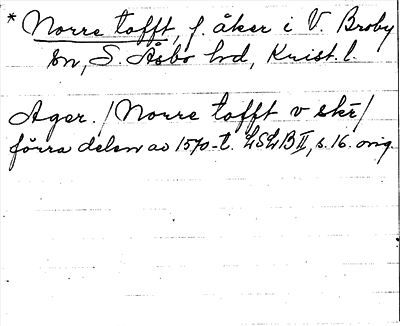 * Norre tofft, f. åker i V. Broby
sn, S. Åsbo hd, Krist. l.
Ager. /Norre tofft v skē/
förra delen av 1570-t. LSLB II, s. 16. orig.